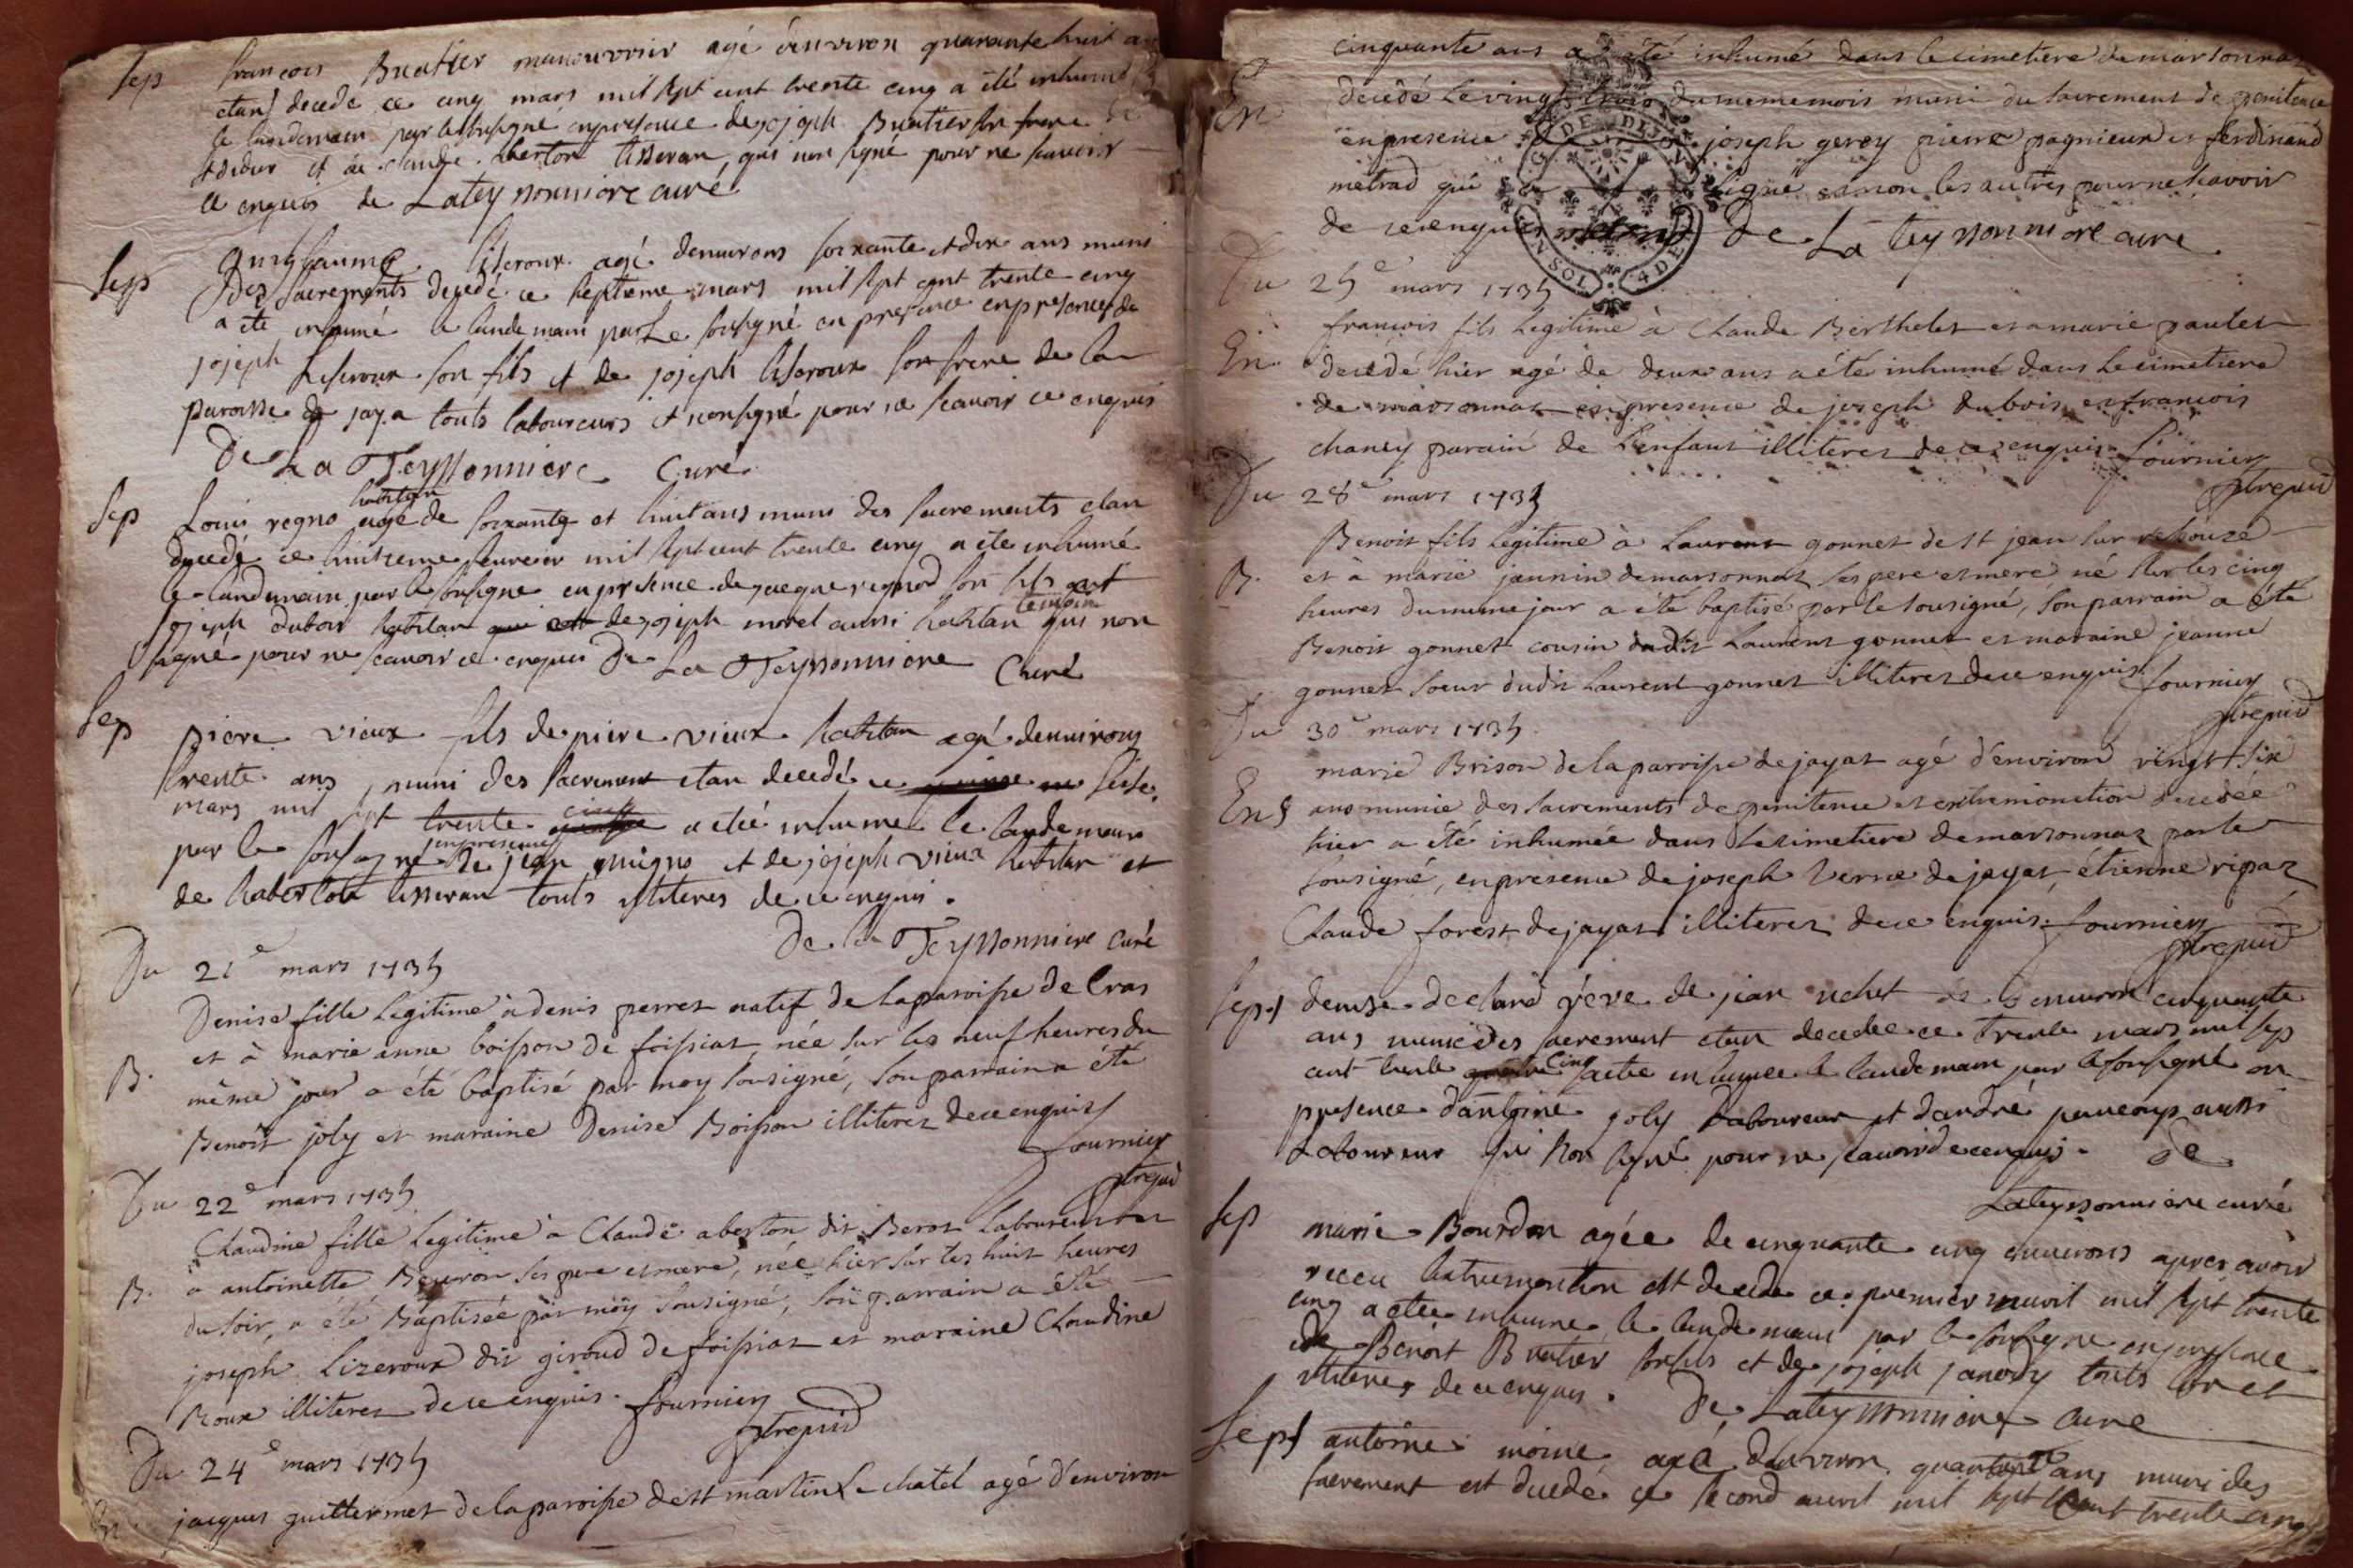 Sep françois Buatier manouvrier agé d'environ quarante huit ans
etant decede ce cinq mars mil sept cent trente cinq a été inhumé
le landemain par le soussigné en presence de joseph Buatier son frere
et de claude Aberton tisseran, qui non signé pour ne scavoir
ce enquis de Lateyssonniere curé
Sep guillaume liseroux agé denvirons soixante et dix ans muni
des sacrements decedé ce septieme mars mil sept cent trente cinq
a été inhumé le landemain par Le soussigné en presence en presence de
joseph Liseroux son fils et de joseph liseroux son frere de la
paroisse de jaya touts laboureurs et non signé pour ne scavoir ce enquis
De La Teyssonniere Curé
Sep Louis regno habitan agé de soixante et huit ans muni des sacrements etan
decedé ce huitieme feuvrier mil sept cent trente cinq a été inhumé
le landemain par le soussigné en presence de jacque regnod son fils
joseph dubois habitan de joseph morel aussi habitan temoin qui non
signé pour ne scavoir ce enquis De La Teyssonniere Curé
Sep piere vieux fils de piere vieux habitan agé denvirons
trente ans muni des sacrement etan decedé ce seise
mars mil sept trente cinq a été inhumé le landemain
par le soussigné en presence de jean migno et de joseph vieux habitan et
de haberton tisseran touts illiteres de ce enquis.
De la Teyssonniere curé
Du 21e mars 1735
Denise fille legitime à denis perret natif de la paroisse de Cras
et à marie anne boisson de foissiat née sur les neuf heures du
B. même jour a été baptisé par moy sousigné, son parrain a été
Benoît joly et maraine Denise Boisson illiterez de ce enquis
fournier
ptre
Du 22e mars 1735
Claudine fille legitime à Claude aberton dit Berot laboureur et
B. à antoinette Beuiron ses pere et mere, née hier sur les huit heures
du soir, a été Baptisée par moy sousigné, son parrain a été
joseph Lizeroux dit giroud de foissiat et maraine Claudine
Roux illiterez de ce enquis. fournier
ptre
Du 24e mars 1735
En jacques guillermet de la paroisse de st martin Le chatel agé d'environ
cinquante ans a été inhumé dans le cimetiere de marsonnaz
En decedé le vingt trois du meme mois muni du sacrement de penitence
en presence joseph gerey pierre pagnieux et ferdinand
metrad qui signé et non les autres pour ne scavoir
de ce enquis De La teyssonniere curé
Du 25e mars 1735
françois fils legitime à Claude Berthelet et a marie paulet
En decedé hier agé de deux ans a été inhumé dans le cimetiere
de marsonnaz en presence de joseph dubois et françois
chaney parain de l'enfant illiterez de ce enquis fournier
ptre
Du 28e mars 1735
Benoit fils legitime à Laurent gonnet de st jean sur resouze
B. et à marie jannin de marsonnaz ses pere et mere né sur les cinq
heures du meme jour a été baptisé par le sousigné, son parrain a été
Benoit gonnet cousin dudit Laurent gonnet et maraine jeanne
gonnet soeur dudit Laurent gonnet illiterez de ce enquis fournier
ptre
Du 30e mars 1735.
marie Brison de la parroisse de jayat agé d'environ vingt six
En ans munie des sacrements de penitence et extremionction decedée
hier a été inhumée dans le cimetiere de marsonnaz par le
sousigné, en presence de joseph Verne de jayat, étienne ripaz
Claude forest de jayat illiterez de ce enquis. fournier
ptre
Sep denise veve de jean environ cinquante
ans munie des sacrement etan decedee ce trente mars mil sep
cent trente cinq a été inhumee le landemain par le soussigné en
presence dantoine joly Laboureur et dandré aussi
Laboureur qui non signé pour ne scavoir de ce enquis. De
Lateyssonniere curé
Sep marie Bourdon agée de cinquante cinq environs apres avoir
receu lextremontion est decede ce premier avril mil sept trente
cinq a été inhume le landemain par le soussigne en presence
de Benoit Buatier son fils et de joseph janody touts
illiteres de ce enquis. De Lateyssonniere Curé
Sep antoine moine agé denviron quarante ans muni des
sacrement est decedé ce second avril mil sept cent trente cinq